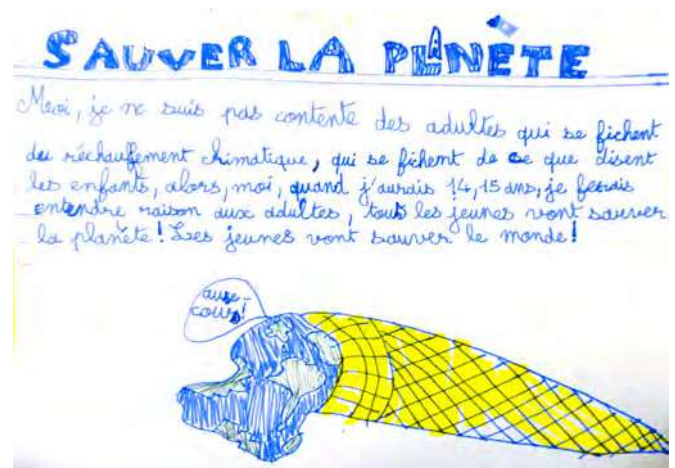 SAUVER LA PLANÈTE
Moi, je ne suis pas contente des adultes qui se fichent
du réchauffement chimatique, qui se fichent de ce que disent
les enfants, alors, moi, quand j'aurais 14, 15 ans, je ferais
entendre raison aux adultes, touts les jeunes vont sauver
la planète! Les jeunes vont sauver le monde!
ause-
cours!